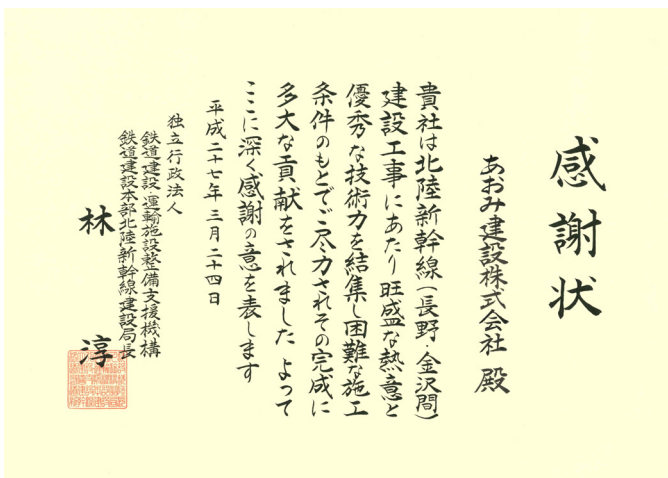 感謝状
あおみ建設株式会社 殿
貴社は北陸新幹線(長野・金沢間)
建設工事にあたり旺盛な熱意と
優秀な技術力を結集し困難な施工
条件のもとでご尽力されその完成に
多大な貢献をされました よって
ここに深く感謝の意を表します
平成二十七年三月二十四日
独立行政法人
鉄道建設・運輸施設整備支援機構
鉄道建設本部北陸新幹線建設局長
林 淳